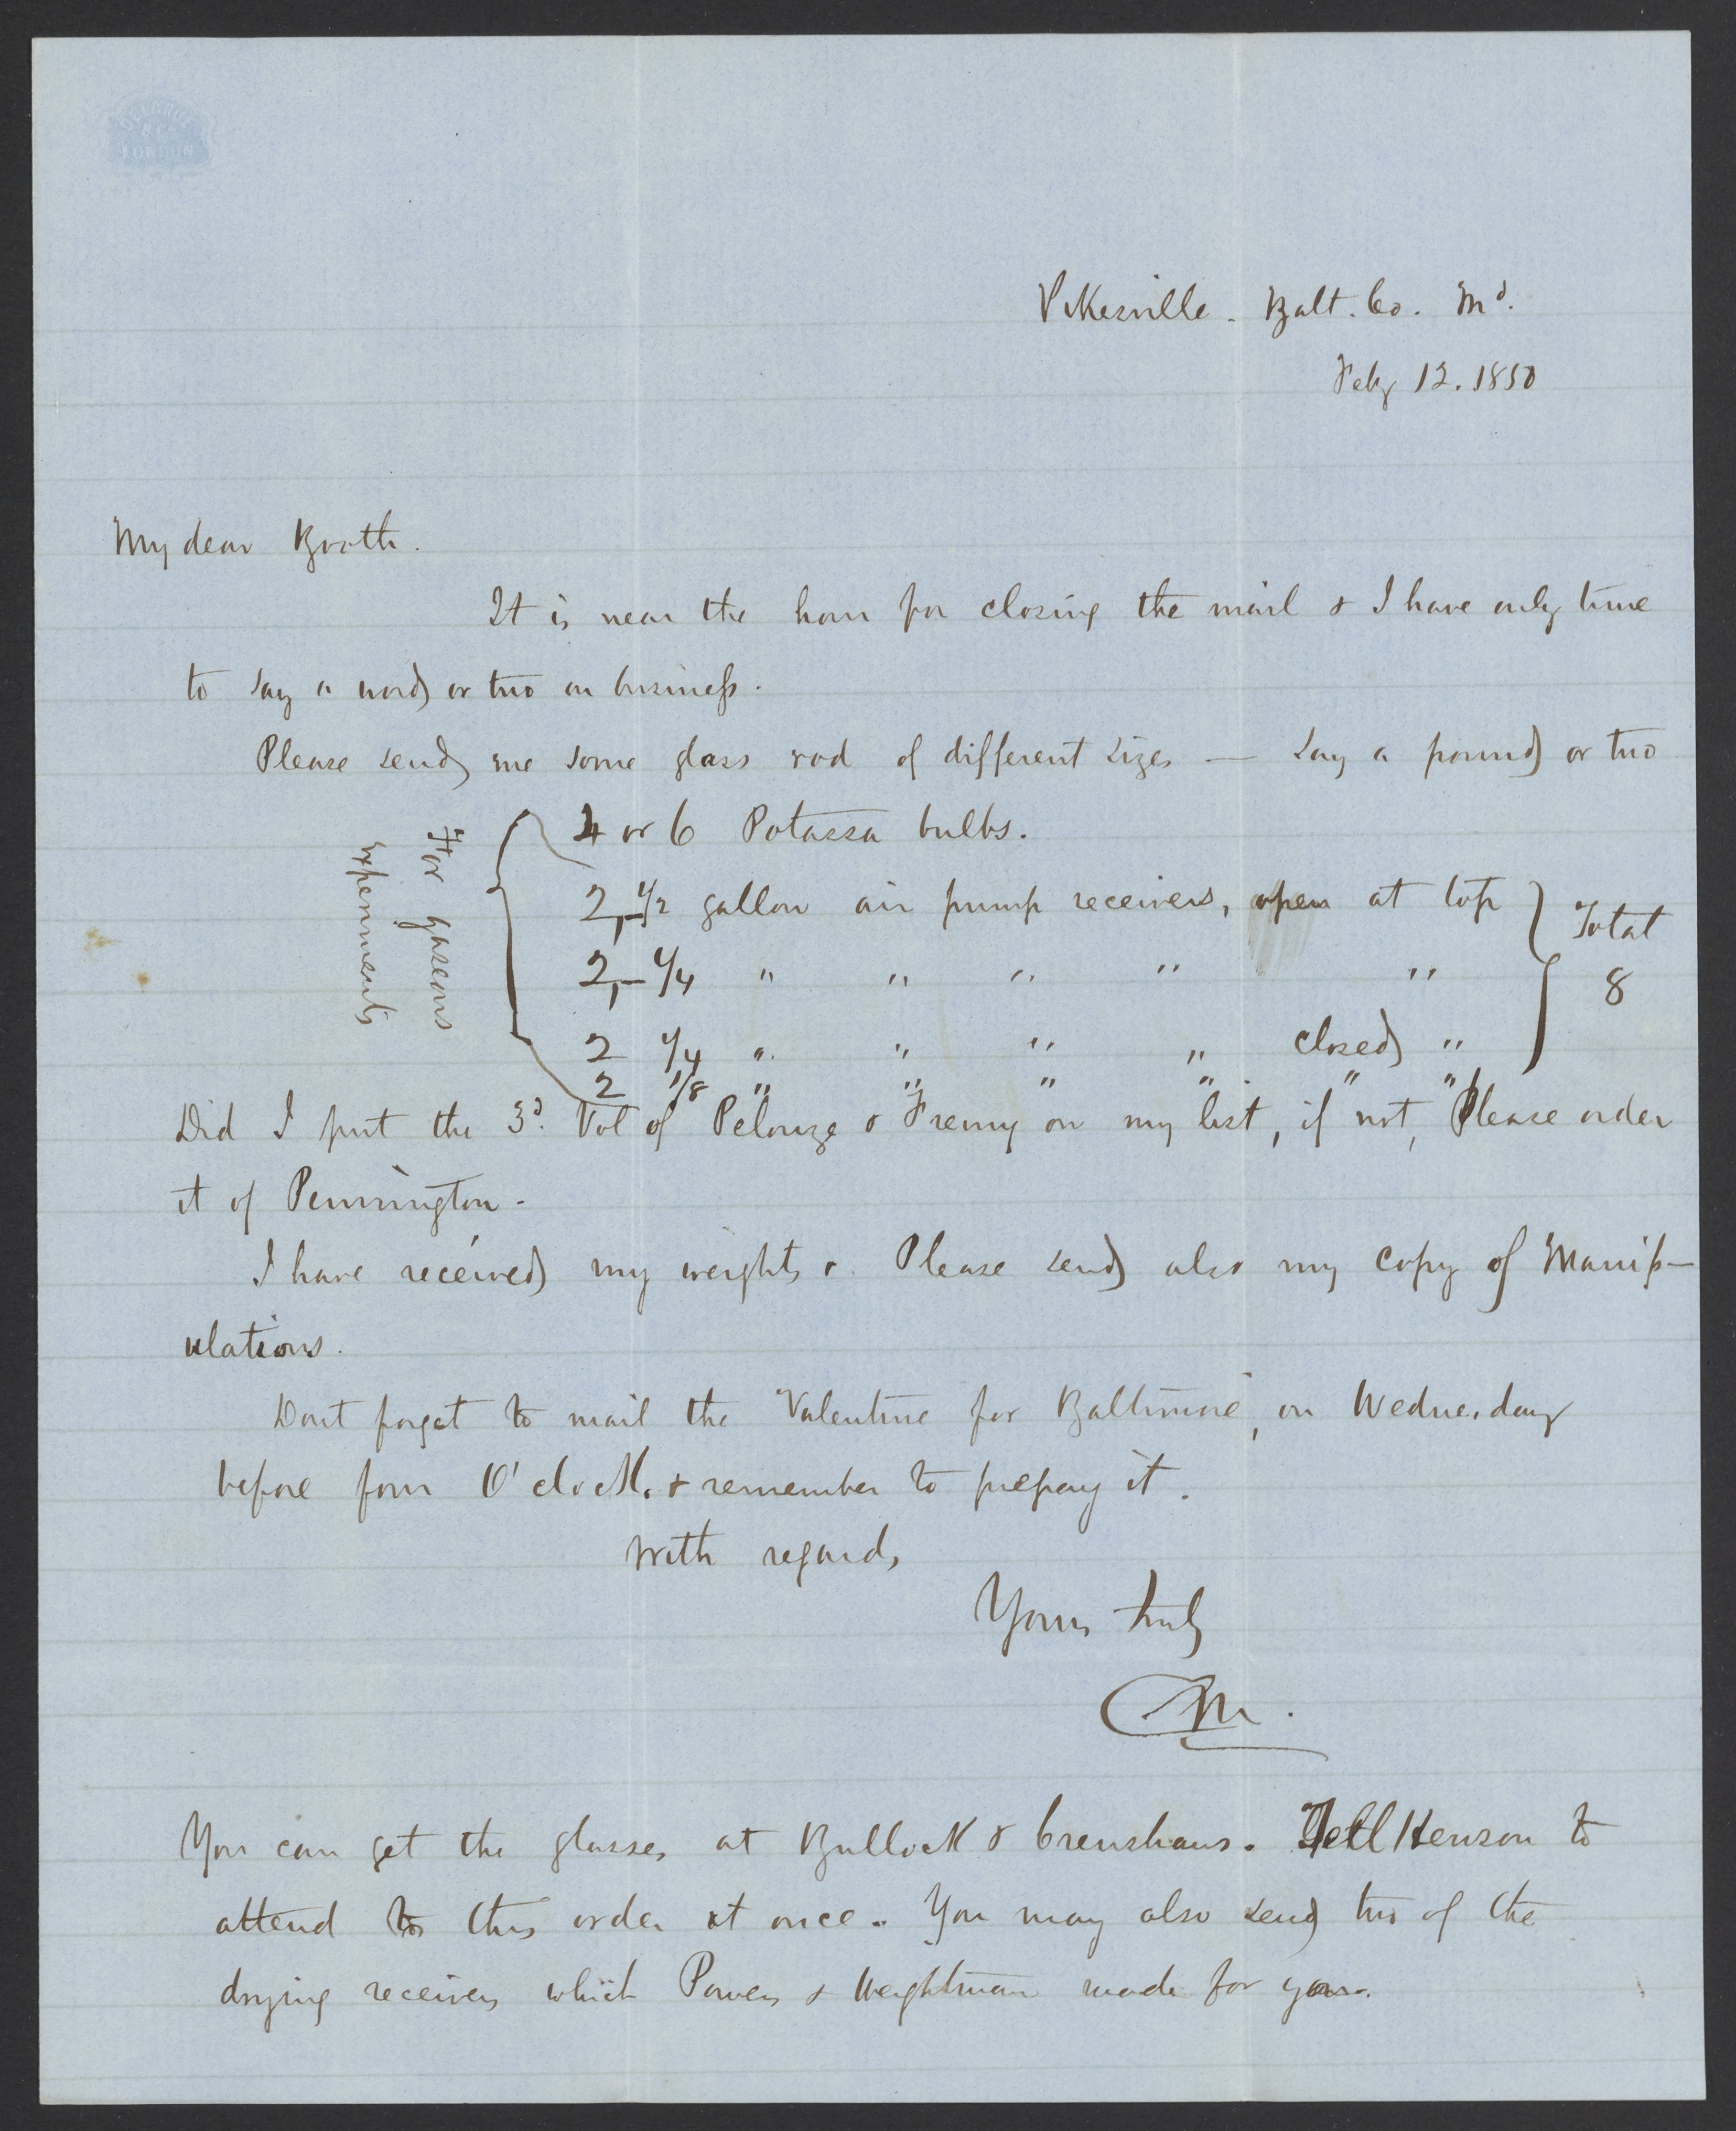 DE LA RUE
& Co
LONDON
Pikesville. Balt. Co. Md.
Feby 12. 1850
My dear Booth.
It is near the hour for closing the mail & I have only time
to say a word or two on business.
Please send me some glass rod of different sizes — say a pound or two
4 or 6 Potassa bulbs.
2, 1/2 gallon air pump receivers, open at top
2, 1/4 " " " " "
2 1/4 " " " " closed "
2 1/8 " " " " " "
For gaseous
experiments
Total
8
Did I put the 3d. Vol of Pelouze & Fremy on my list, if not, Please order
it of Pennington.
I have received my weights &. Please send also my copy of Manip-
ulations.
Dont forget to mail the Valentine for Baltimore, on Wednesday
before four O'clock. & remember to prepay it.
With regards
Yours truly
CM.
You can get the glasses at Bullock & Crenshaws. Tell Henson to
attend to this order at once. You may also send two of the
drying receivers which Powers & Weightman made for you.